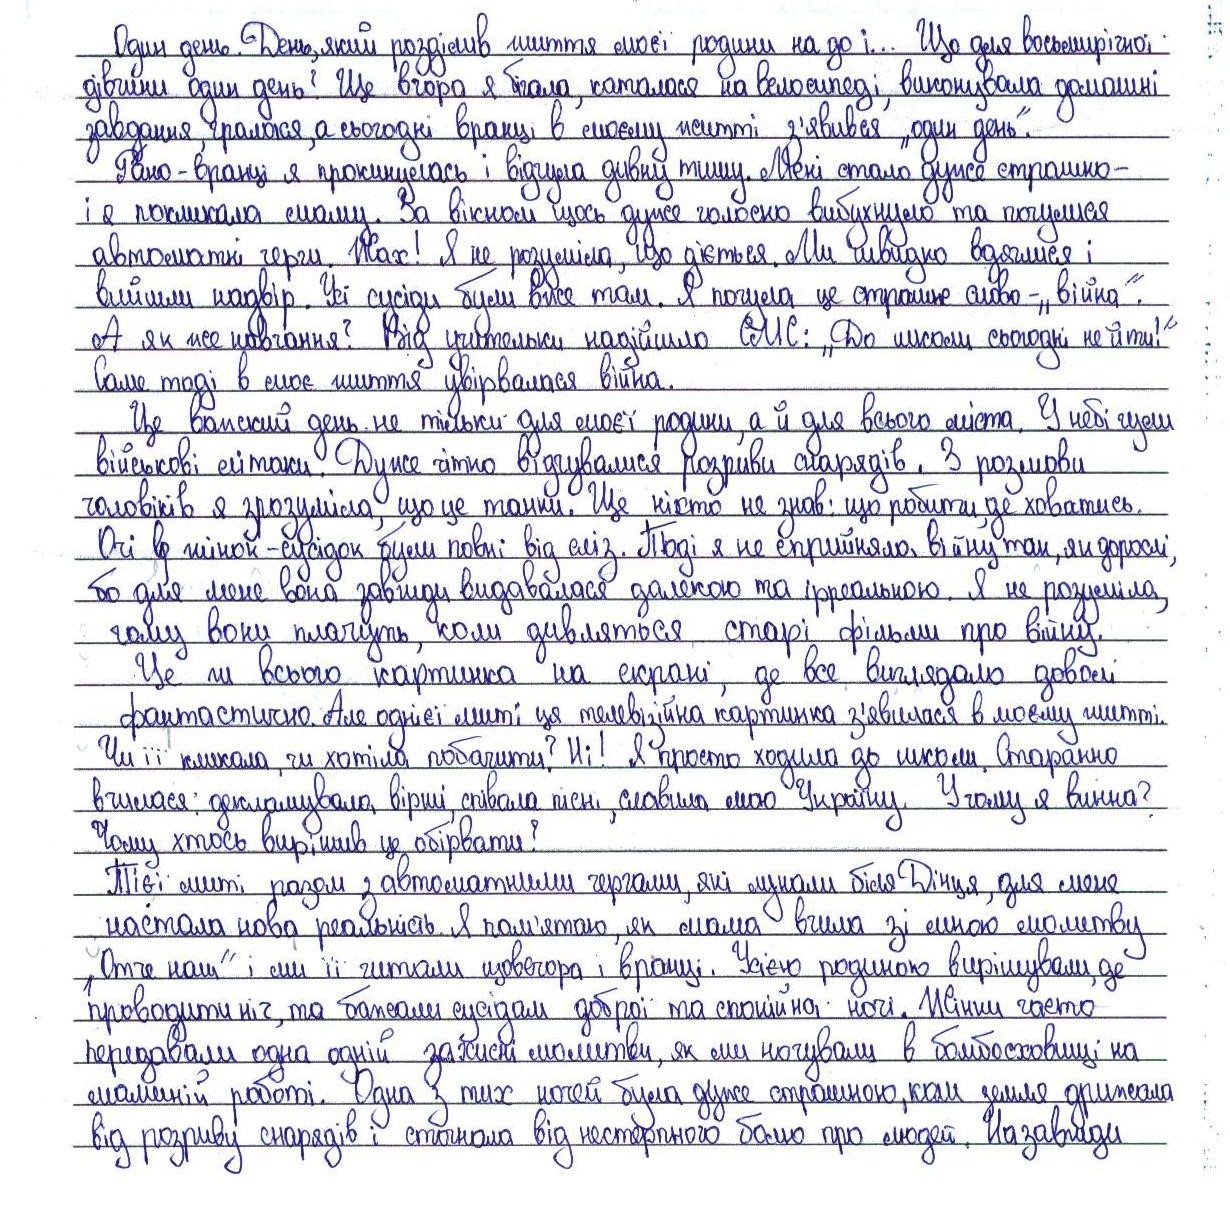 Один день. День, який розділив життя моєї родини на до і... Що для восьмирічної
дівчини один день? Ще вчора я бігала, каталася на велосипеді, виконувала домашні
завдання, гралася, а сьогодні вранці в моєму житті з'явився „один день“.
Рано-вранці я прокинулась і відчула дивну тишу. Мені стало дуже страшно-
і я покликала маму. За вікном щось дуже голосно вибухнуло та почулися
автоматні черги. Жах! Я не розуміла, що діється. Ми швидко вдяглися і
вийшли надвір. Усі сусіди були вже там. Я почула це страшне слово-„війна“.
А як же навчання? Від учительки надійшло СМС: „До школи сьогодні не йти!“
Саме тоді в моє життя увірвалася війна.
Це важкий день не тільки для моєї родини, а й для всього міста. У небі гули
військові літаки. Дуже чітко відчувалися розриви снарядів. З розмови
чоловіків я зрозуміла, що це танки. Ще ніхто не знав: що робити, де ховатись.
Очі в жінок-сусідок були повні від сліз. Тоді я не сприйняла війну так, як дорослі,
бо для мене вона завжди видавалася далекою та ірреальною. Я не розуміла,
чому вони плачуть, коли дивляться старі фільми про війну.
Це ж всього картинка на екрані, де все виглядало доволі
фантастично. Але однієї миті ця телевізійна картинка з'явилася в моєму житті.
Чи її кликала, чи хотіла побачити? Ні! Я просто ходила до школи. Старанно
вчилася: декламувала вірші, співала пісні, славила мою Україну. У чому я винна?
Чому хтось вирішив це обірвати?
Тієї миті разом з автоматними чергами, які лунали біля Дінця, для мене
настала нова реальність. Я пам'ятаю, як мама вчила зі мною молитву
„Отче наш“ і ми її читали щовечора і вранці. Усією родиною вирішували, де
проводити ніч, та бажали сусідам доброї та спокійної ночі. Жінки часто
передавали одна одній захисні молитви, як ми ночували в бомбосховищі на
маминій роботі. Одна з тих ночей була дуже страшною, коли земля дрижала
від розриву снарядів і стогнала від нестерпного болю про людей. Назавжди